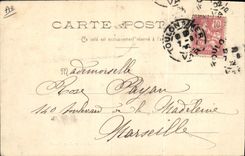 CARTE POSTALE
Ce côté est exclusivement réservé à l'adresse
TOULON
Mademoiselle
Rose Payan
140 boulevard de la Madeleine
Marseille